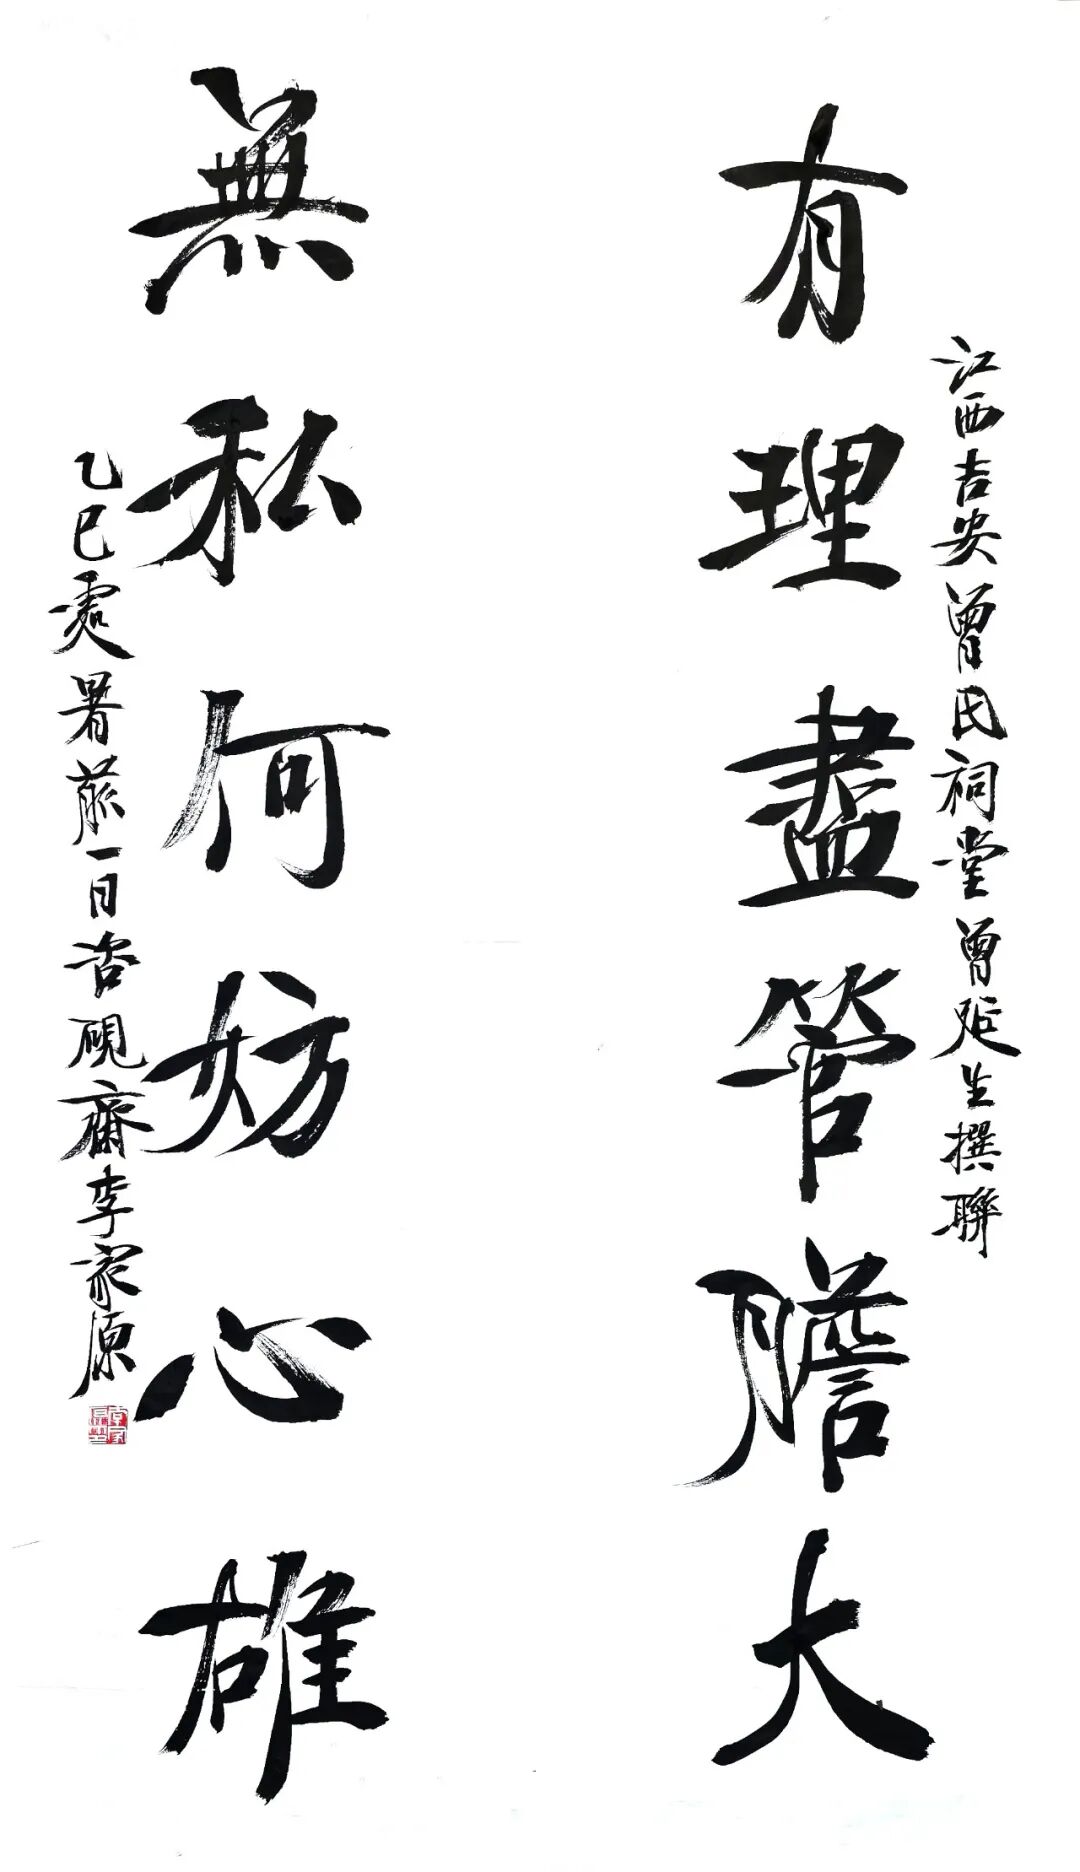 江西吉安曾氏祠堂曾延生撰聯
有理盡管膽大
無私何妨心雄
乙巳處暑一日硯齋李家原